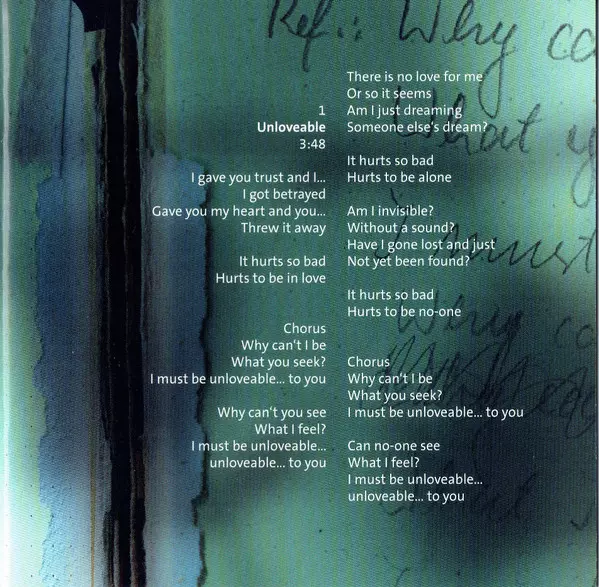 1
Unloveable
3:48
I gave you trust and I...
I got betrayed
Gave you my heart and you...
Threw it away
It hurts so bad
Hurts to be in love
Chorus
Why can't I be
What you seek?
I must be unloveable... to you
Why can't you see
What I feel?
I must be unloveable...
unloveable... to you
There is no love for me
Or so it seems
Am I just dreaming
Someone else's dream?
It hurts so bad
Hurts to be alone
Am I invisible?
Without a sound?
Have I gone lost and just
Not yet been found?
It hurts so bad
Hurts to be no-one
Chorus
Why can't I be
What you seek?
I must be unloveable... to you
Can no-one see
What I feel?
I must be unloveable...
unloveable... to you
Ref.: Why ca
What y
I must
Why ca